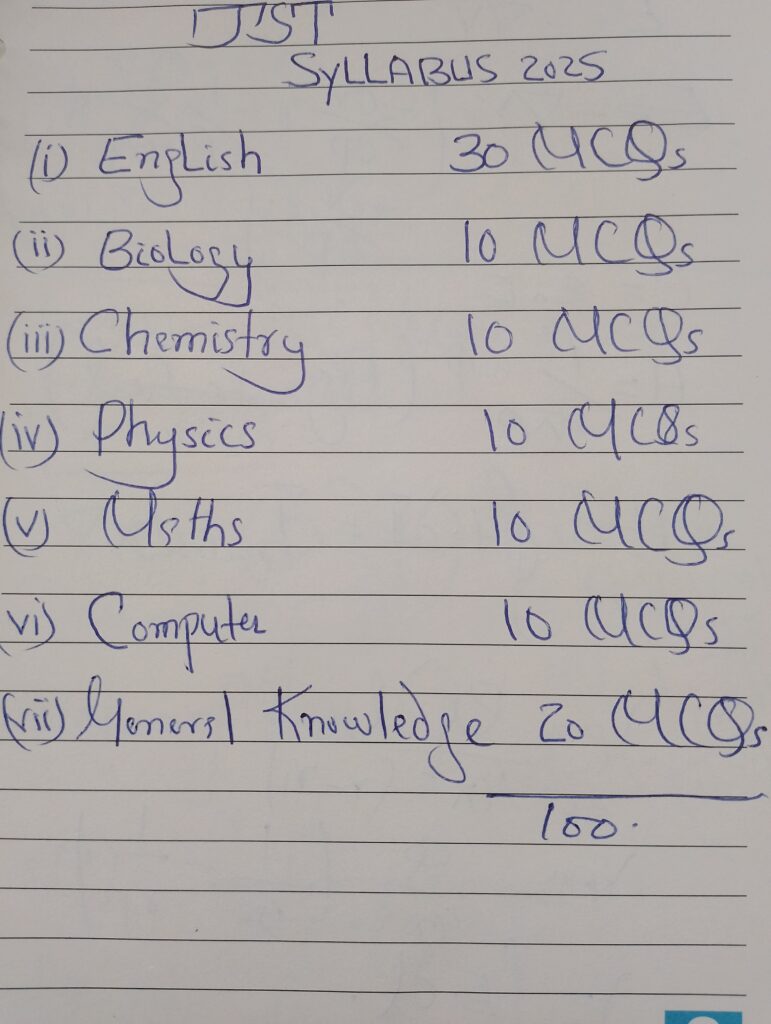 JST
SYLLABUS 2025
(i) English 30 MCQs
(ii) Biology 10 MCQs
(iii) Chemistry 10 MCQs
(iv) Physics 10 MCQs
(v) Maths 10 MCQs
vi) Computer 10 MCQs
(vii) General Knowledge 20 MCQs
100.